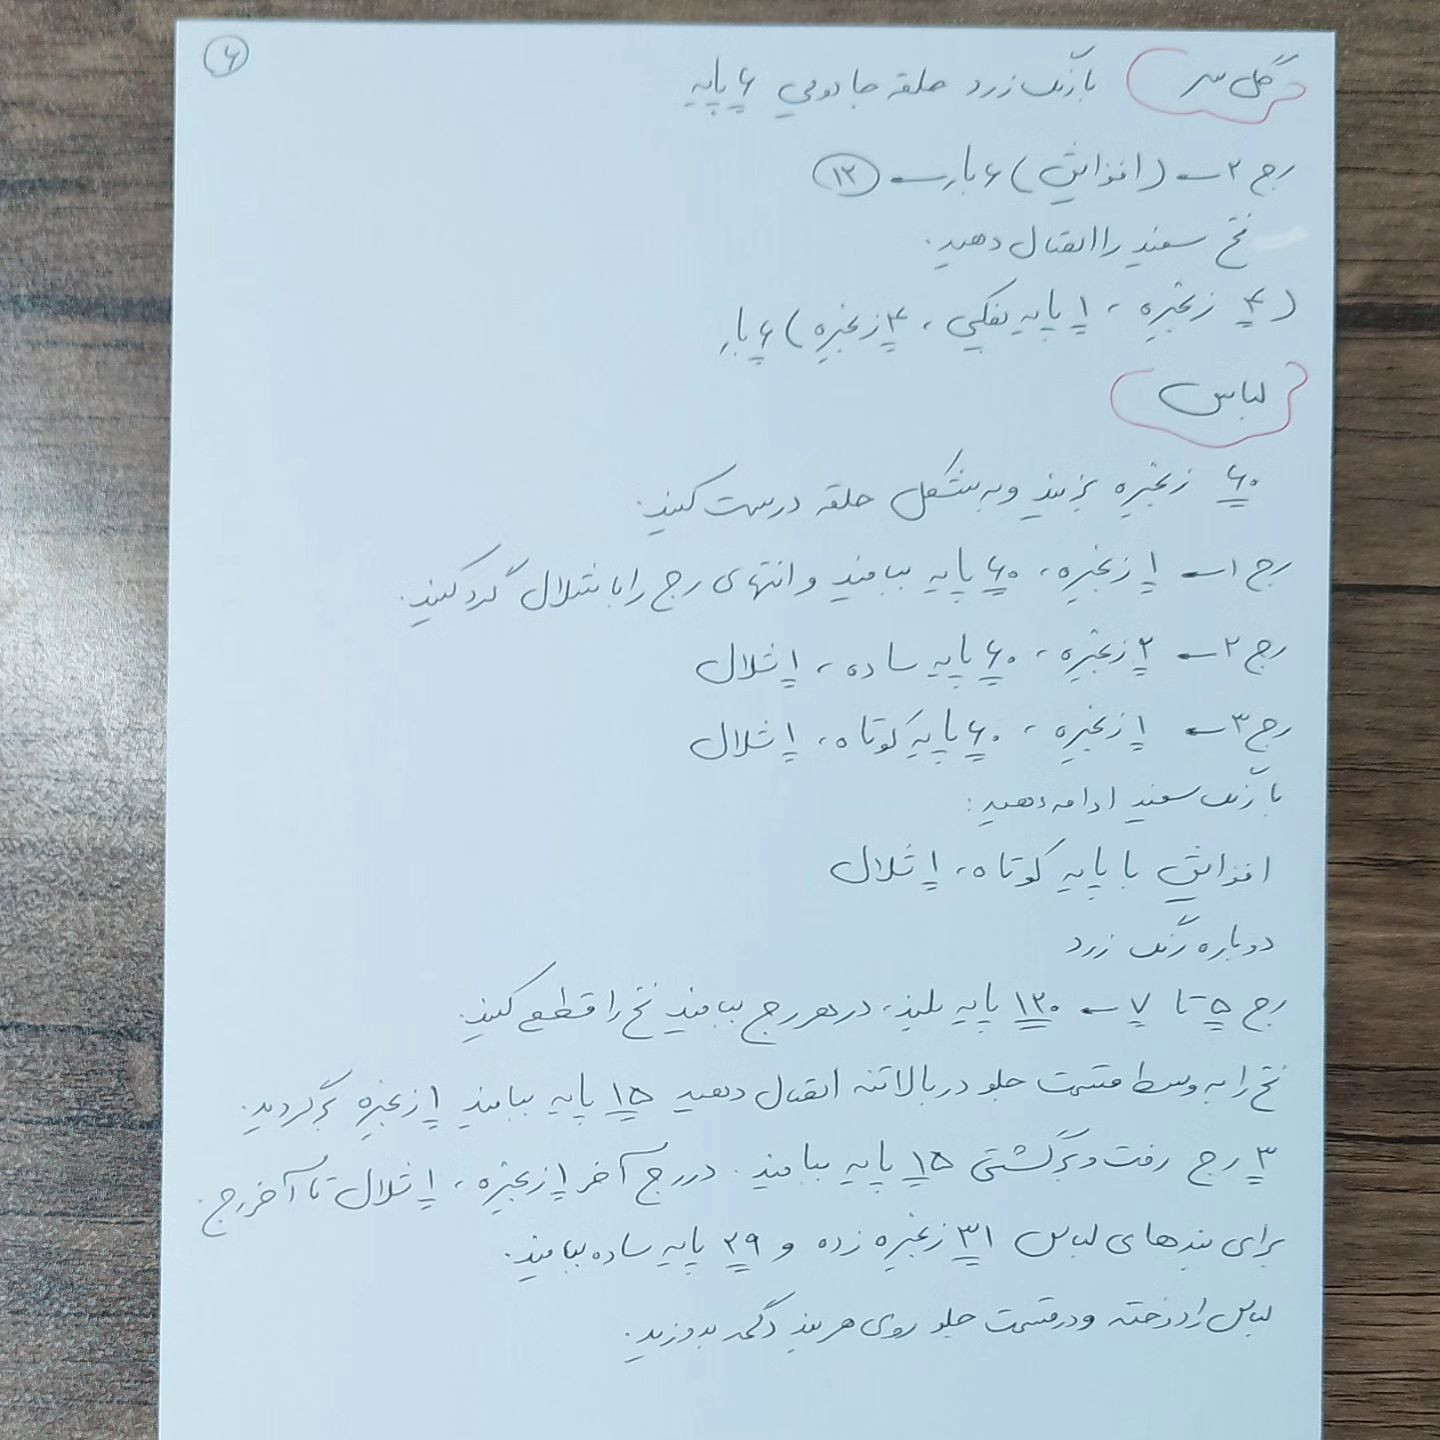 ۶
گل سر
با رنگ زرد حلقه جادویی ۶ پایه
رج ۲ ← (افزایش) ۶ بار ← ۱۲
نخ سفید را انتقال دهید.
(۴ زنجیره ، ۱ پایه پفکی ، ۴ زنجیره) ۶ بار
لباس
۶۰ زنجیره بزنید و به شکل حلقه درست کنید.
رج ۱ ← ۱ زنجیره ، ۶۰ پایه ببافید و انتهای رج را با ۱ شلال گرد کنید.
رج ۲ ← ۲ زنجیره ، ۶۰ پایه ساده ، ۱ شلال
رج ۳ ← ۱ زنجیره ، ۶۰ پایه کوتاه ، ۱ شلال
با رنگ سفید ادامه دهید:
افزایش با پایه کوتاه ، ۱ شلال
دوباره رنگ زرد
رج ۵ تا ۷ ← ۱۲۰ پایه بلند ، در هر رج ببافید نخ را قطع کنید.
نخ را به وسط قسمت جلو در بالاتنه انتقال دهید ۱۵ پایه ببافید ۱ زنجیره برگردید.
۳ رج رفت و برگشتی ۱۵ پایه ببافید . در رج آخر ۱ زنجیره ، ۱ شلال تا آخر رج .
برای بندهای لباس ۳۱ زنجیره زده و ۲۹ پایه ساده ببافید.
لباس را دوخته و در قسمت جلو روی هر بند دگمه بدوزید.